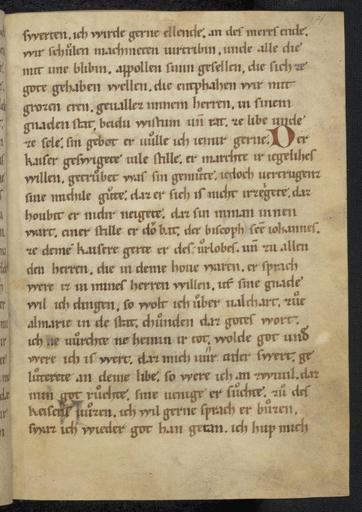 swerten. ich wirde gerne ellende. an des meres ende.
wir schulen machmeten uirtribin. unde alle die
mit ime blibin. appollen sinin gesellen. die sich ze
gote gehaben wellen. die entphahen wir mit
grozen eren. geuallez minem herren. in sinem
gnaden stat. beidu wistum uñ rat. ze libe unde
ze sele. sin gebot er uulle ich iemir gerne. Der
kaiser geswigete uile stille. er marchte ir iegeliches
willen. getrůbet was sin gemůte. iedoch
sine michile gůte. daz er sich is nicht irzeigete. daz
houbit er nidir neigete. daz sin niman innen
wart. einer stille er do bat. der biscoph sc̄e iohannes.
ze deme kaisere gerte er des urlobes. uñ zu allen
den herren. die in deme houe waren. er sprach
were iz in mines herren willen. uf sine gnade
wil ich dingen. so wolt ich uber ualchart. zue
almarie in de stat. chunden daz gotes wort.
ich ne wrchte ne heinin ir tot. wolde got und
were ich is wert. daz mich uiir oder swert. ge
luterete an deme libe. so were ich an zwiuil. daz
min got ruchte. sine uenige er suchte. zu des
keiseris uuzen. ich wil gerne sprach er buzen.
swaz ich wieder got han getan. ich hup mich